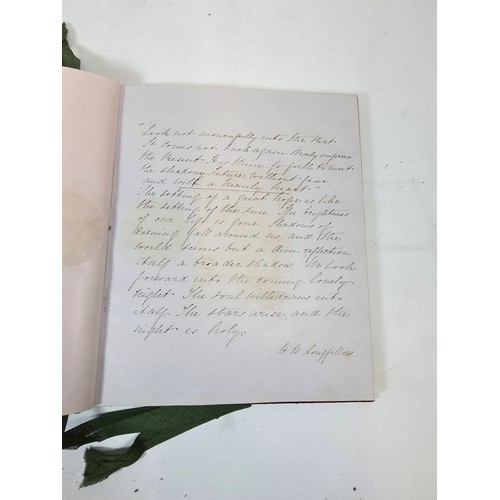 "Look not mournfully into the Past.
It comes not back again. Wisely improve
the Present. It is thine. Go forth to meet
the shadowy Future, without fear,
and with a manly heart."
The setting of a great hope is like
the setting of the sun. The brightness
of our life is gone. Shadows of
Evening fall around us, and the
world seems but a dim reflection
itself a broader shadow. We look
forward into the coming lonely
night. The soul withdraws into
itself. The stars arise, and the
night is holy.
H W Longfellow